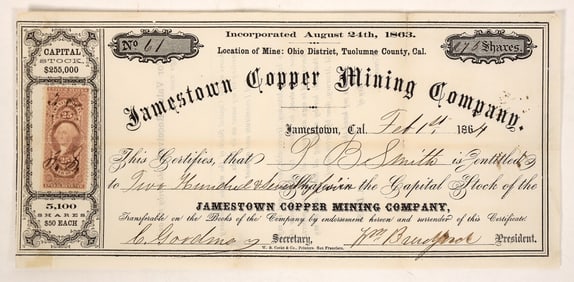 Incorporated August 24th, 1863.
No 61
Shares.
Location of Mine: Ohio District, Tuolumne County, Cal.
CAPITAL
STOCK.
$255,000
Jamestown Copper Mining Company.
Jamestown, Cal. Feb 1st 1864
This Certifies, that P B Smith is entitled
to Two Hundred & in the Capital Stock of the
JAMESTOWN COPPER MINING COMPANY,
Transferable on the Books of the Company by endorsement hereon and surrender of this Certificate.
5,100
SHARES
$50 EACH
Secretary, Wm President.
W. B. Cooke & Co., Printers, San Francisco.